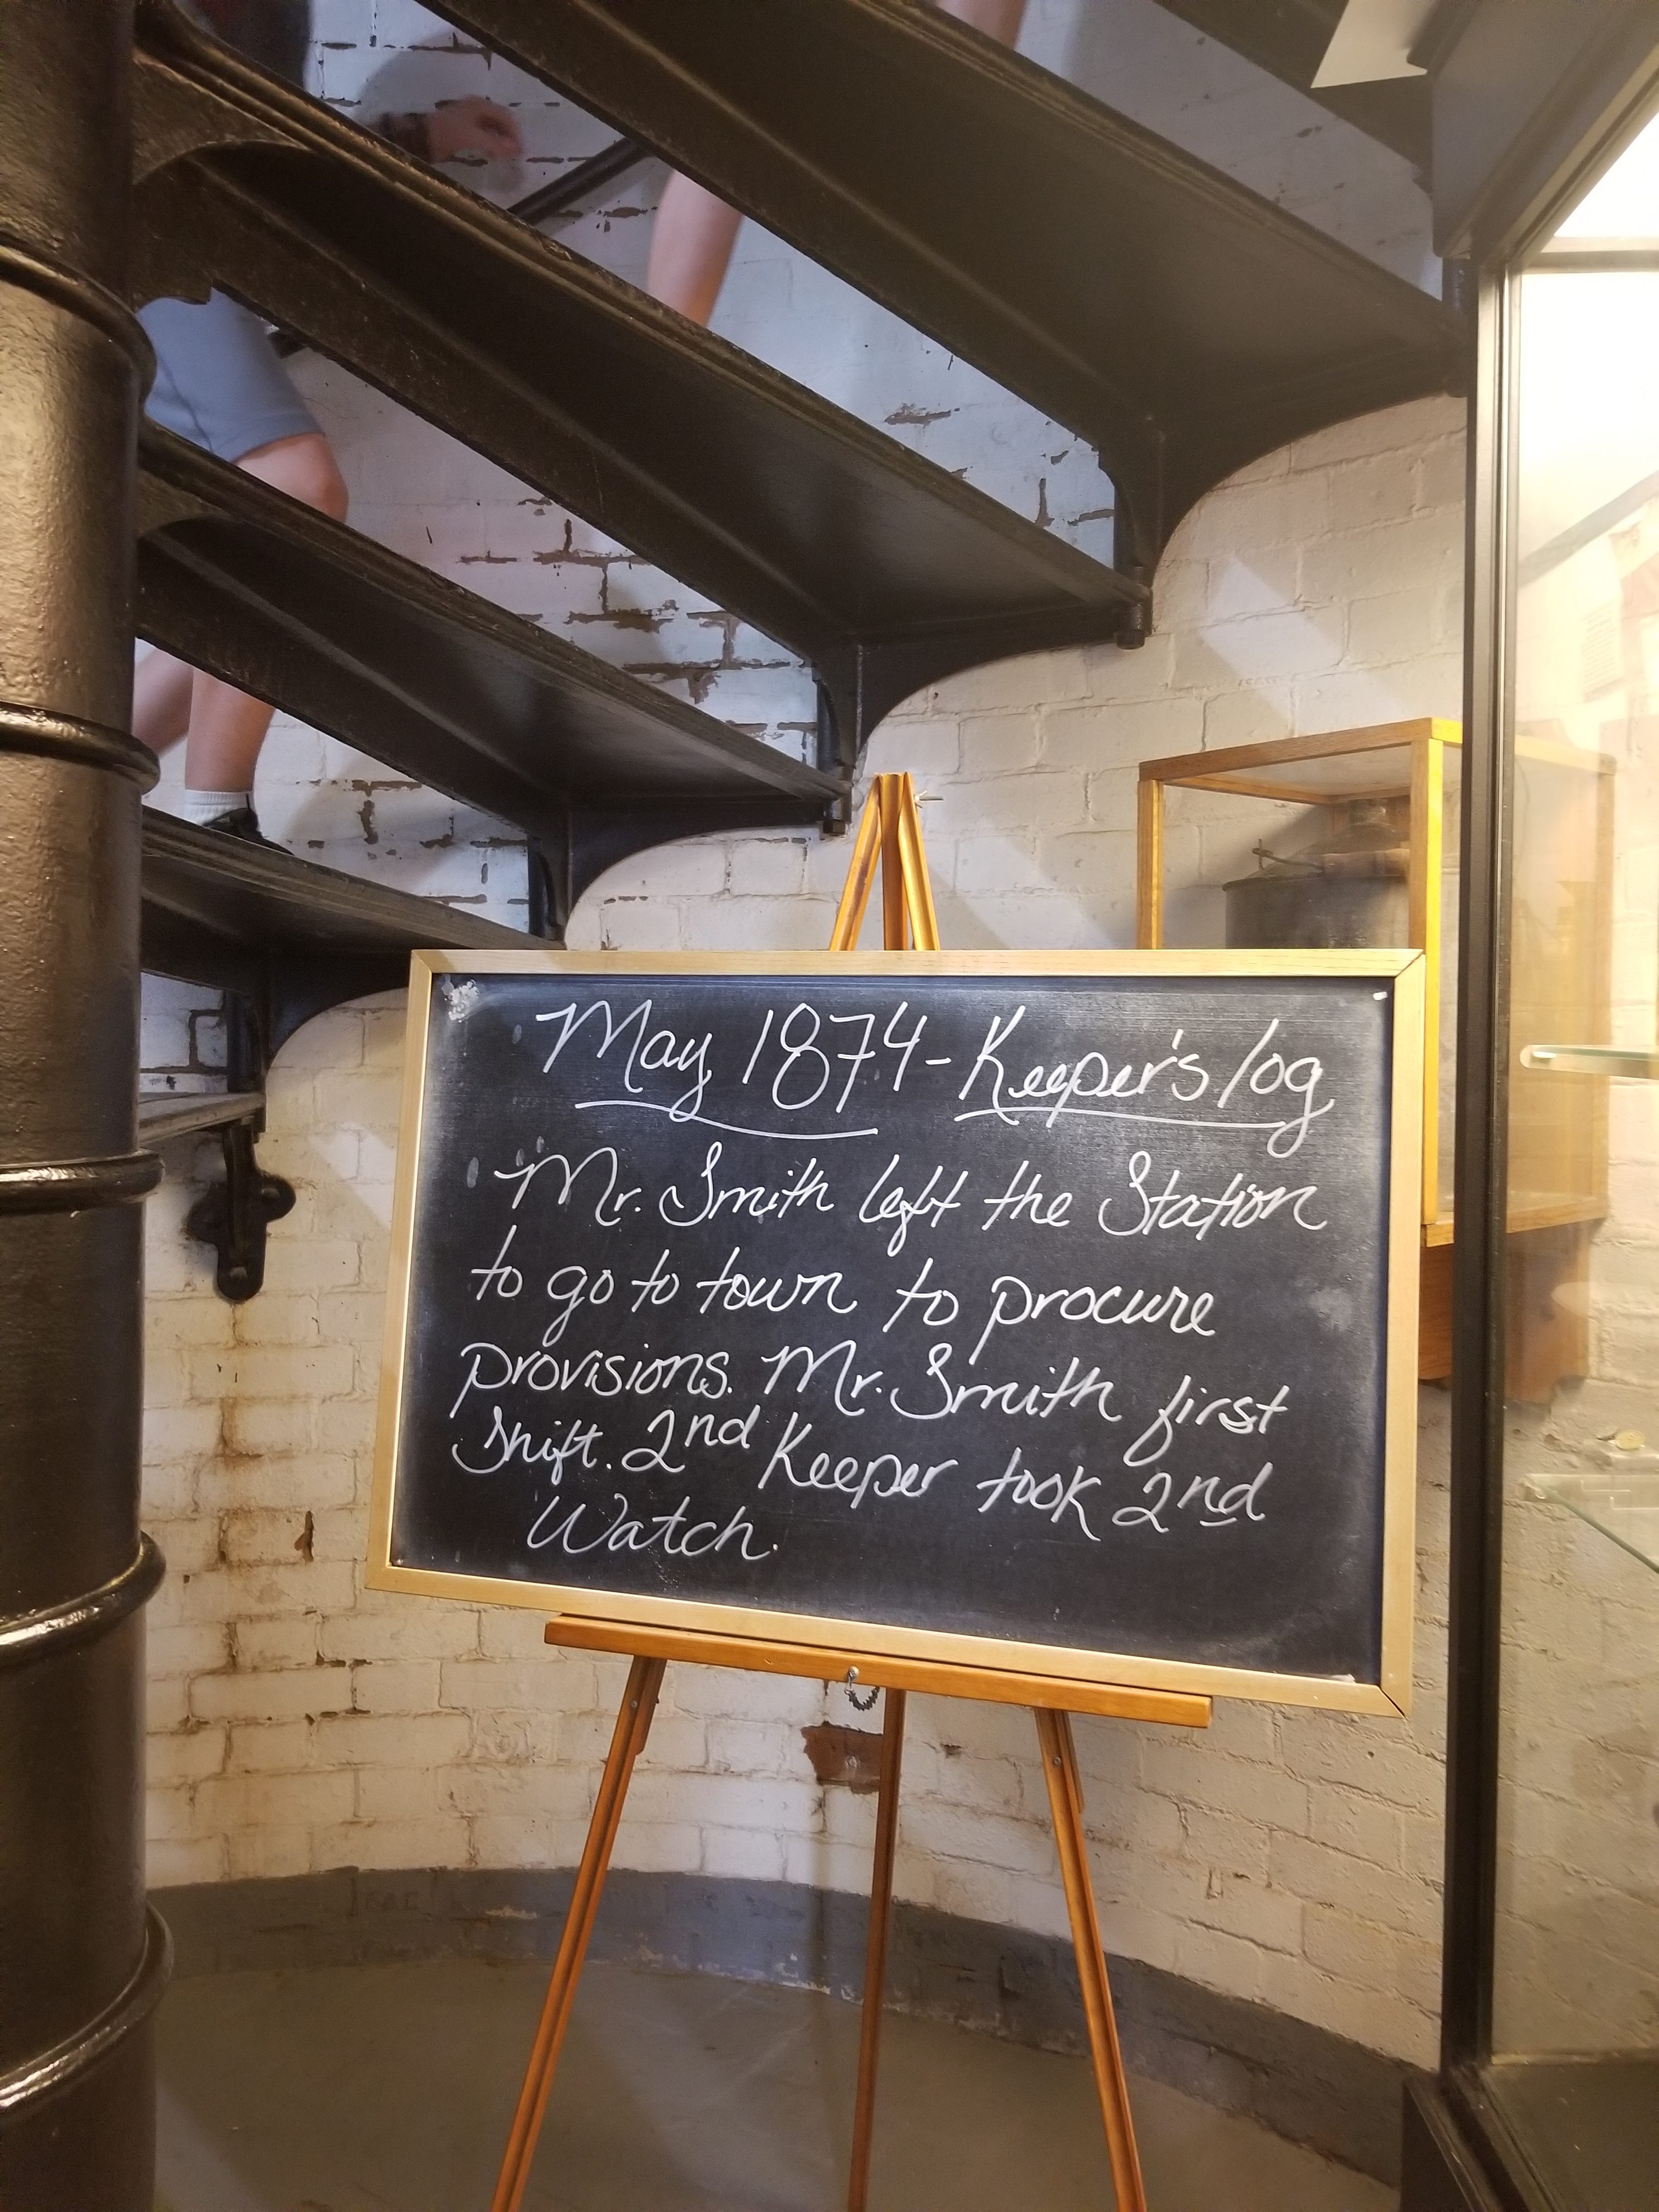 May 1874 - Keeper's log
Mr. Smith left the Station
to go to town to procure
provisions. Mr. Smith first
Shift. 2nd Keeper took 2nd
Watch.